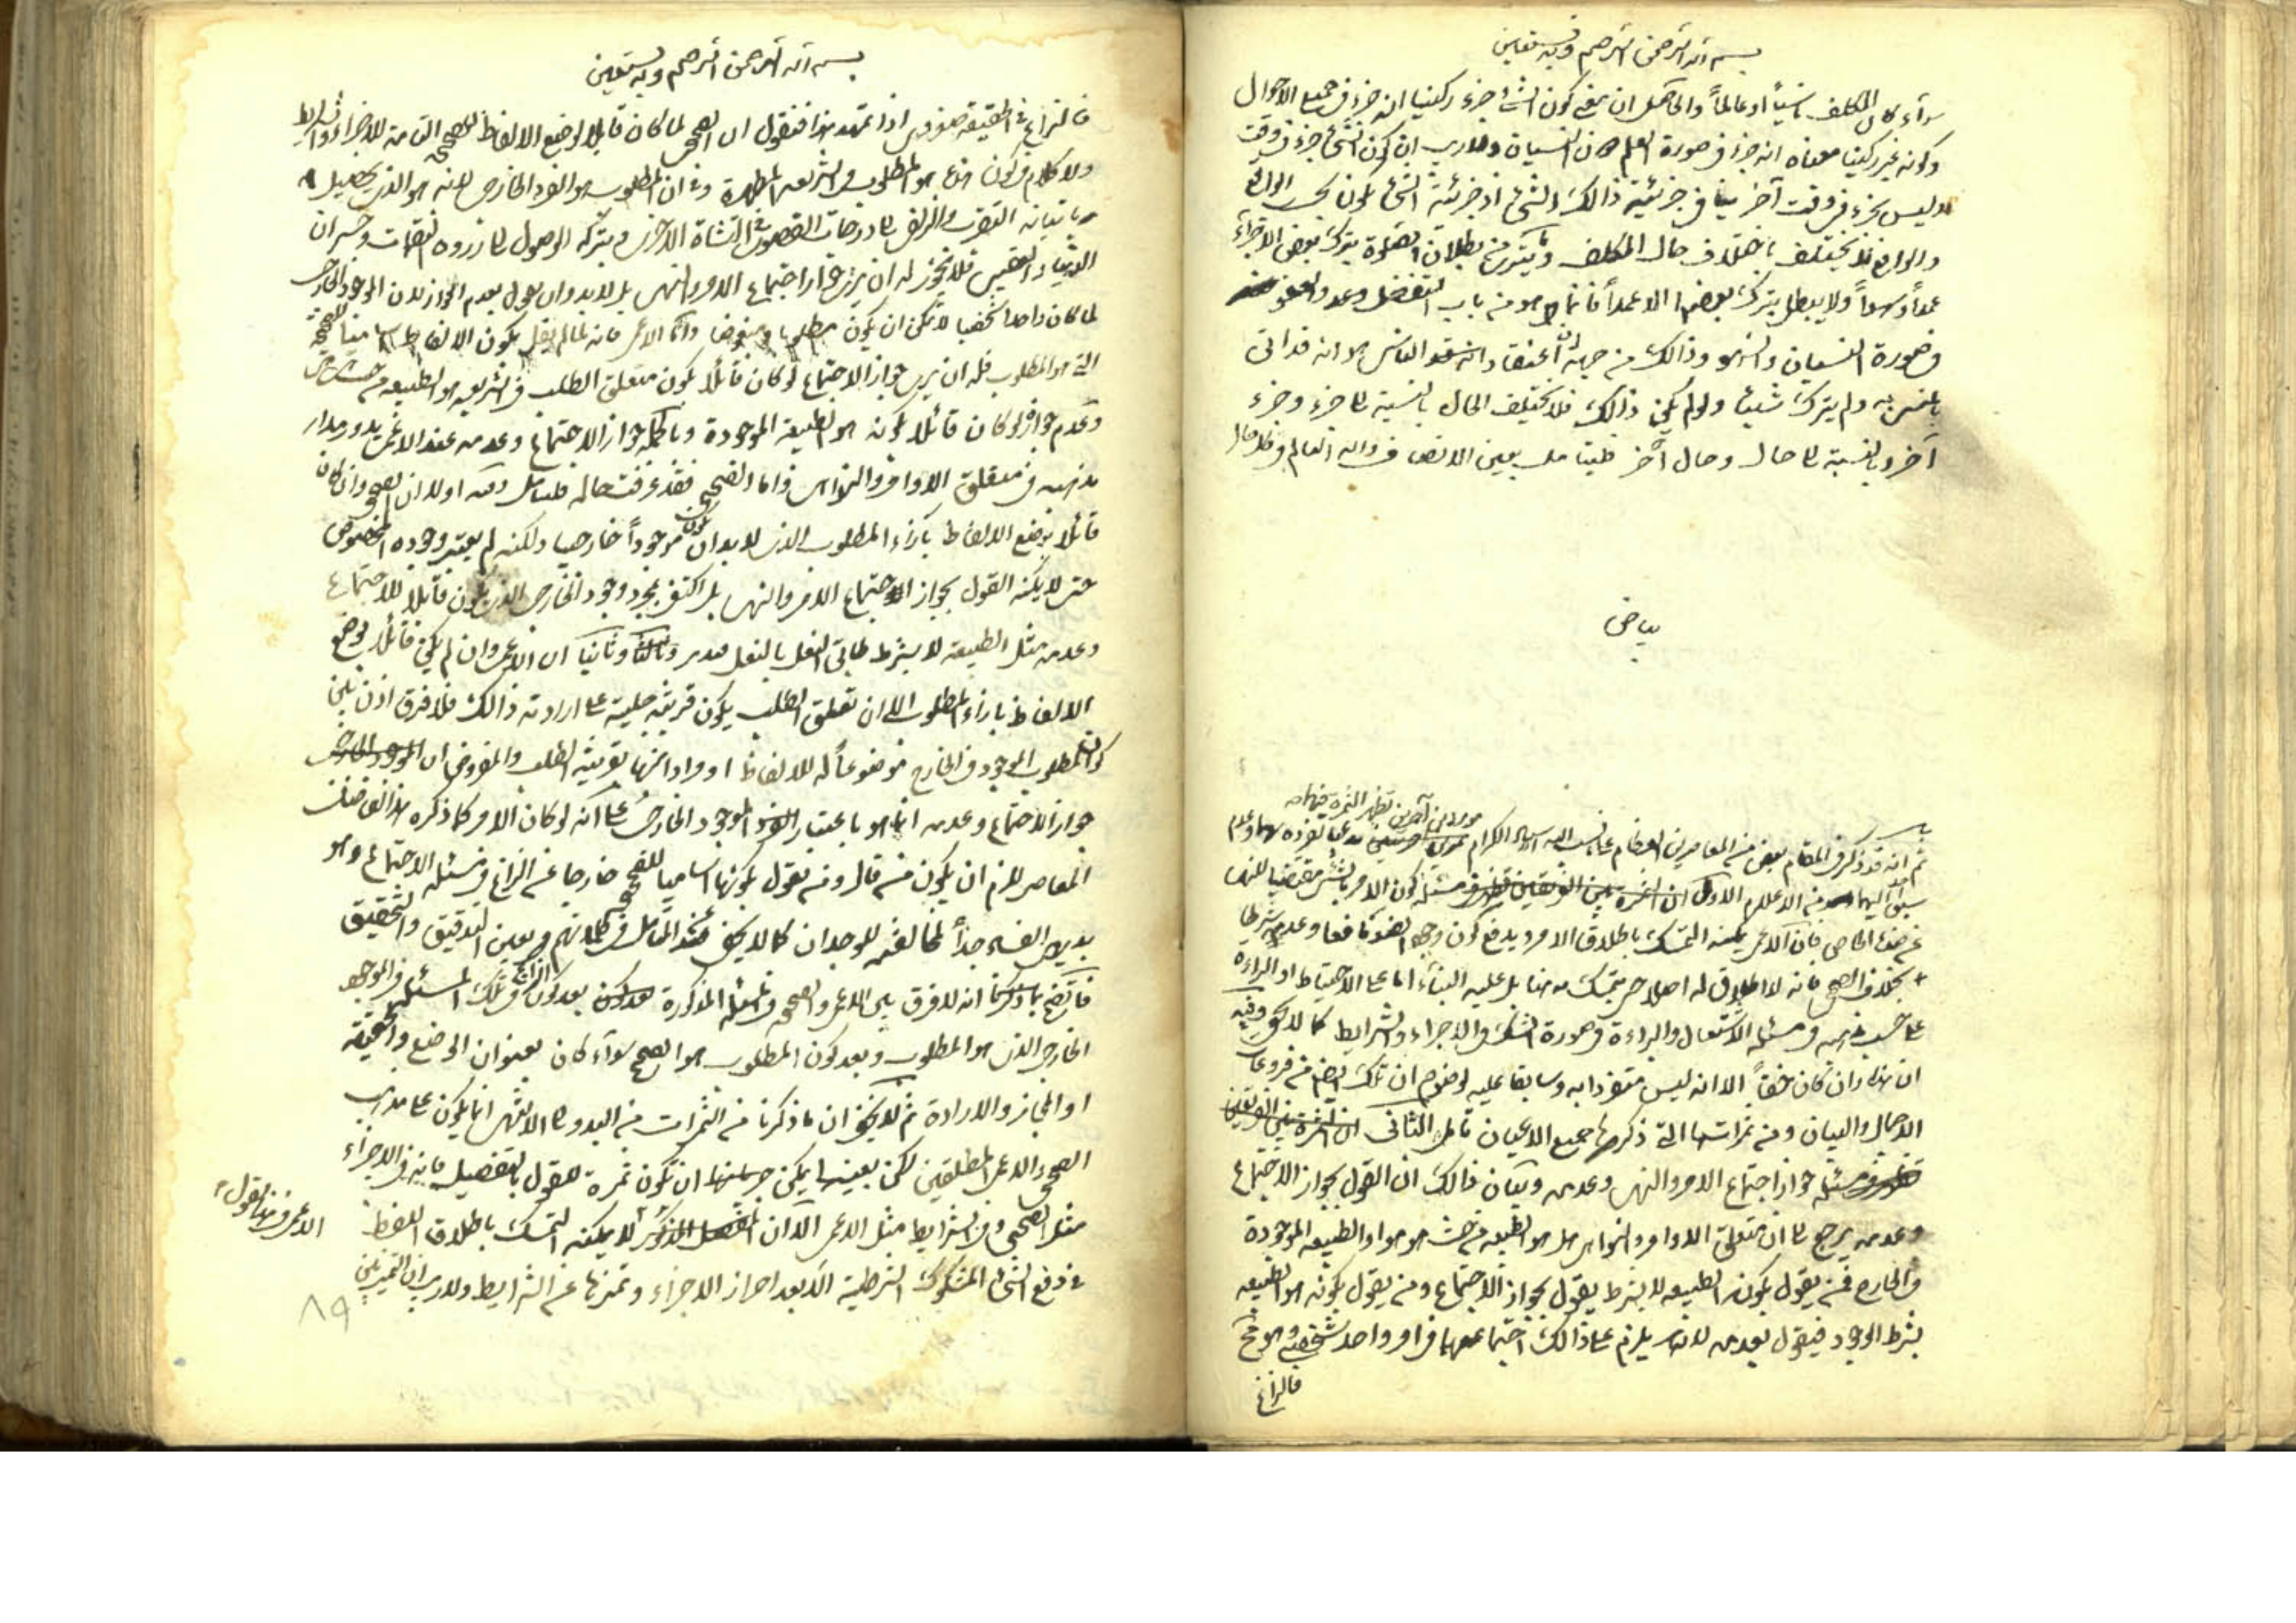 بسم الله الرحمن الرحيم وبه نستعين
سواء كان المكلف ناسياً او عالماً والحاصل ان معنى كون الشئ جزء ركنيا انه جزء فى جميع الاحوال
وكونه غير ركنيا معناه انه جزء فى صورة العلم دون النسيان ولا ريب ان كون الشئ جزء فى وقت
وليس بجزء فى وقت آخر ينافى جزئية ذالك الشئ اذ جزئية الشئ تكون بحسب الواقع
والواقع فلا يختلف باختلاف حال المكلف وما يترى من بطلان الصلوة بترك بعض الاجزاء
عمداً وسهواً ولا يبطل بترك بعضها الا عمداً فانما هو من باب التفضل وعدم
فى صورة النسيان والسهو وذالك من جهة اعتقاد الناسى انه قد اتى
بالمأمور به ولم يترك شيئا ولو لم يكن ذالك فلا يختلف الحال بالنسبة الى جزء وجزء
آخر وبالنسبة الى حال وحال آخر فليتأمل بعين الانصاف والله العالم
بياض
ثم انه قد ذكر فى المقام بعض من المعاصرين العظام
موردين آخرين تظهر الثمرة فيهما
سبق اليهما من الاعلام الاول ان الثمرة بين الفريقين تظهر فى مسئلة كون الامر بالشئ مقتضيا للنهى
عن ضده الخاص فان الاعمى يمكنه التمسك باطلاق الامر ويدفع كون وجود الضد مانعا وعدمه شرطا
بخلاف الصحيحى فانه لا اطلاق له اصلا حتى يتمسك به هنا بل عليه البناء اما على الاحتياط او البراءة
على حسب مذهبه فى مسئلة الاشتغال والبراءة فى صورة الشك فى الاجزاء والشرايط كما لا يخفى وفيه
ان هذا وان كان حقاً الا انه ليس متفردا به وسابقا عليه لوضوح ان تلك ايضا من فروعات
الاجمال والبيان ومن ثمراتها التى ذكرها جميع الاعيان تأمل الثانى ان الثمرة بين الفريقين
تظهر فى مسئلة جواز اجتماع الامر والنهى وعدمه وبيان ذالك ان القول بجواز الاجتماع
وعدمه يرجع الى ان متعلق الاوامر والنواهى هل هو الطبيعة من حيث هو هو او الطبيعة الموجودة
فى الخارج فمن يقول بكونه الطبيعة لا بشرط يقول بجواز الاجتماع ومن يقول بكونه هو الطبيعة
بشرط الوجود فيقول بعدمه لانه يلزم على ذالك اجتماعهما فى امر واحد شخصى وهو قبيح
فالنزاع
بسم الله الرحمن الرحيم وبه نستعين
فالنزاع فى الحقيقة صغروى اذا تمهد هذا فنقول ان الصحيحى لما كان قائلا بوضع الالفاظ للصحيح التامة للاجزاء والشرايط
ولا كلام فى كون هذا هو المطلوب فى الشريعة المطهرة وفى ان المطلوب هو الفرد الخارجى لانه هو الذى يحصل
باتيانه التقرب والزلفى الى درجات القصور فى النشأة الاخرى وبتركه الوصول الى ذروة النقمات وخسران
الدنيا والعقبى فلا يجوز له ان يرى جواز اجتماع الامر والنهى بل لا بد وان يقول بعدم الجواز لان الموجود الخارجى
لما كان واحدا شخصيا لا يمكن ان يكون مطلوبا ومبغوضا واما الاعمى فانه لما لم يقل بكون الالفاظ اساميا للصحيحة
التى هو المطلوب فله ان يرى جواز الاجتماع لو كان قائلا بكون متعلق الطلب فى الشريعة هو الطبيعة من حيث هى هى
وعدم جوازه لو كان قائلا بكونه هو الطبيعة الموجودة وبالجملة جواز الاجتماع وعدمه عند الاعمى يدور مدار
مذهبه فى متعلق الاوامر والنواهى واما الصحيحى فقد عرفت حاله فليتأمل وفيه اولا ان الصحيحى وان كان
قائلا بوضع الالفاظ بازاء المطلوب الذى لا بد ان يكون موجوداً خارجيا ولكنه لم يعتبر وجوده المخصوص
حتى لا يمكنه القول بجواز اجتماع الامر والنهى بل اكتفى بمجرد وجود الخارجى الذى يكون قابلا للاجتماع
وعدمه مثل الطبيعة لا بشرط طابق النعل بالنعل فتدبر وثانيا ان الاعمى وان لم يكن قائلا بوضع
الالفاظ بازاء المطلوب الا ان تعلق الطلب يكون قرينة جلية على ارادته ذالك فلا فرق اذن بين
كون المطلوب الموجود فى الخارج موضوعاً له للالفاظ او مرادا منها بقرينة الطلب والمفروض ان الموجود الخارجى
جواز الاجتماع وعدمه انما هو باعتبار الفرد الموجود الخارجى على انه لو كان الامر كما ذكره هذا الفاضل
المعاصر للزم ان يكون من قال ومن يقول بكونها اساميا للصحيح خارجا عن النزاع فى مسئلة الاجتماع وهو
بديهى الفساد جداً لمخالفته للوجدان كما لا يخفى عند التأمل فى كلماتهم وبعين التدقيق والتحقيق
فاتضح بما ذكرنا انه لا فرق بين الاعمى والصحيحى فى المسئلة المذكورة بعد كون النزاع فى تلك المسئلة فى الموجود
الخارجى الذى هو المطلوب وبعد كون المطلوب هو الصحيح سواء كان بعنوان الوضع والحقيقة
او المجاز والارادة ثم لا يخفى ان ما ذكرنا من الثمرات من البدو الى الانتهاء انما يكون على مذهب
الصحيحى والاعمى المطلقين لكن بعينها يمكن جريانها ان تكون ثمرة للقول بالتفصيل فانه فى الاجزاء
مثل الصحيحى وفى الشرايط مثل الاعمى الا ان المفصل المذكور لا يمكنه التمسك باطلاق اللفظ
فى دفع الشئ المشكوك الشرطية الا بعد احراز الاجزاء وتميزها عن الشرايط ولا ريب ان التميز بين
٨٩